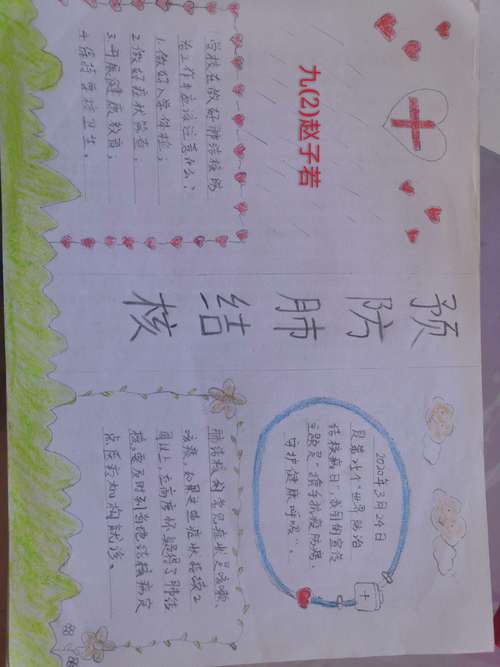 九(2)赵子若
预防肺结核
学校在做好肺结核防
治工作中应该注意什么?
1.做好入学体检;
2.做好症状筛查;
3.开展健康教育;
4.保持学校卫生。
2020年3月24日
是第25个"世界防治
结核病日",我们的宣传
主题是"携手抗疫防痨,
守护健康呼吸"。
肺结核的常见症状是咳嗽、
咳痰,如果这些症状持续2
周以上,应高度怀疑得了肺结
核,要及时到当地结核病定
点医疗机构就诊。